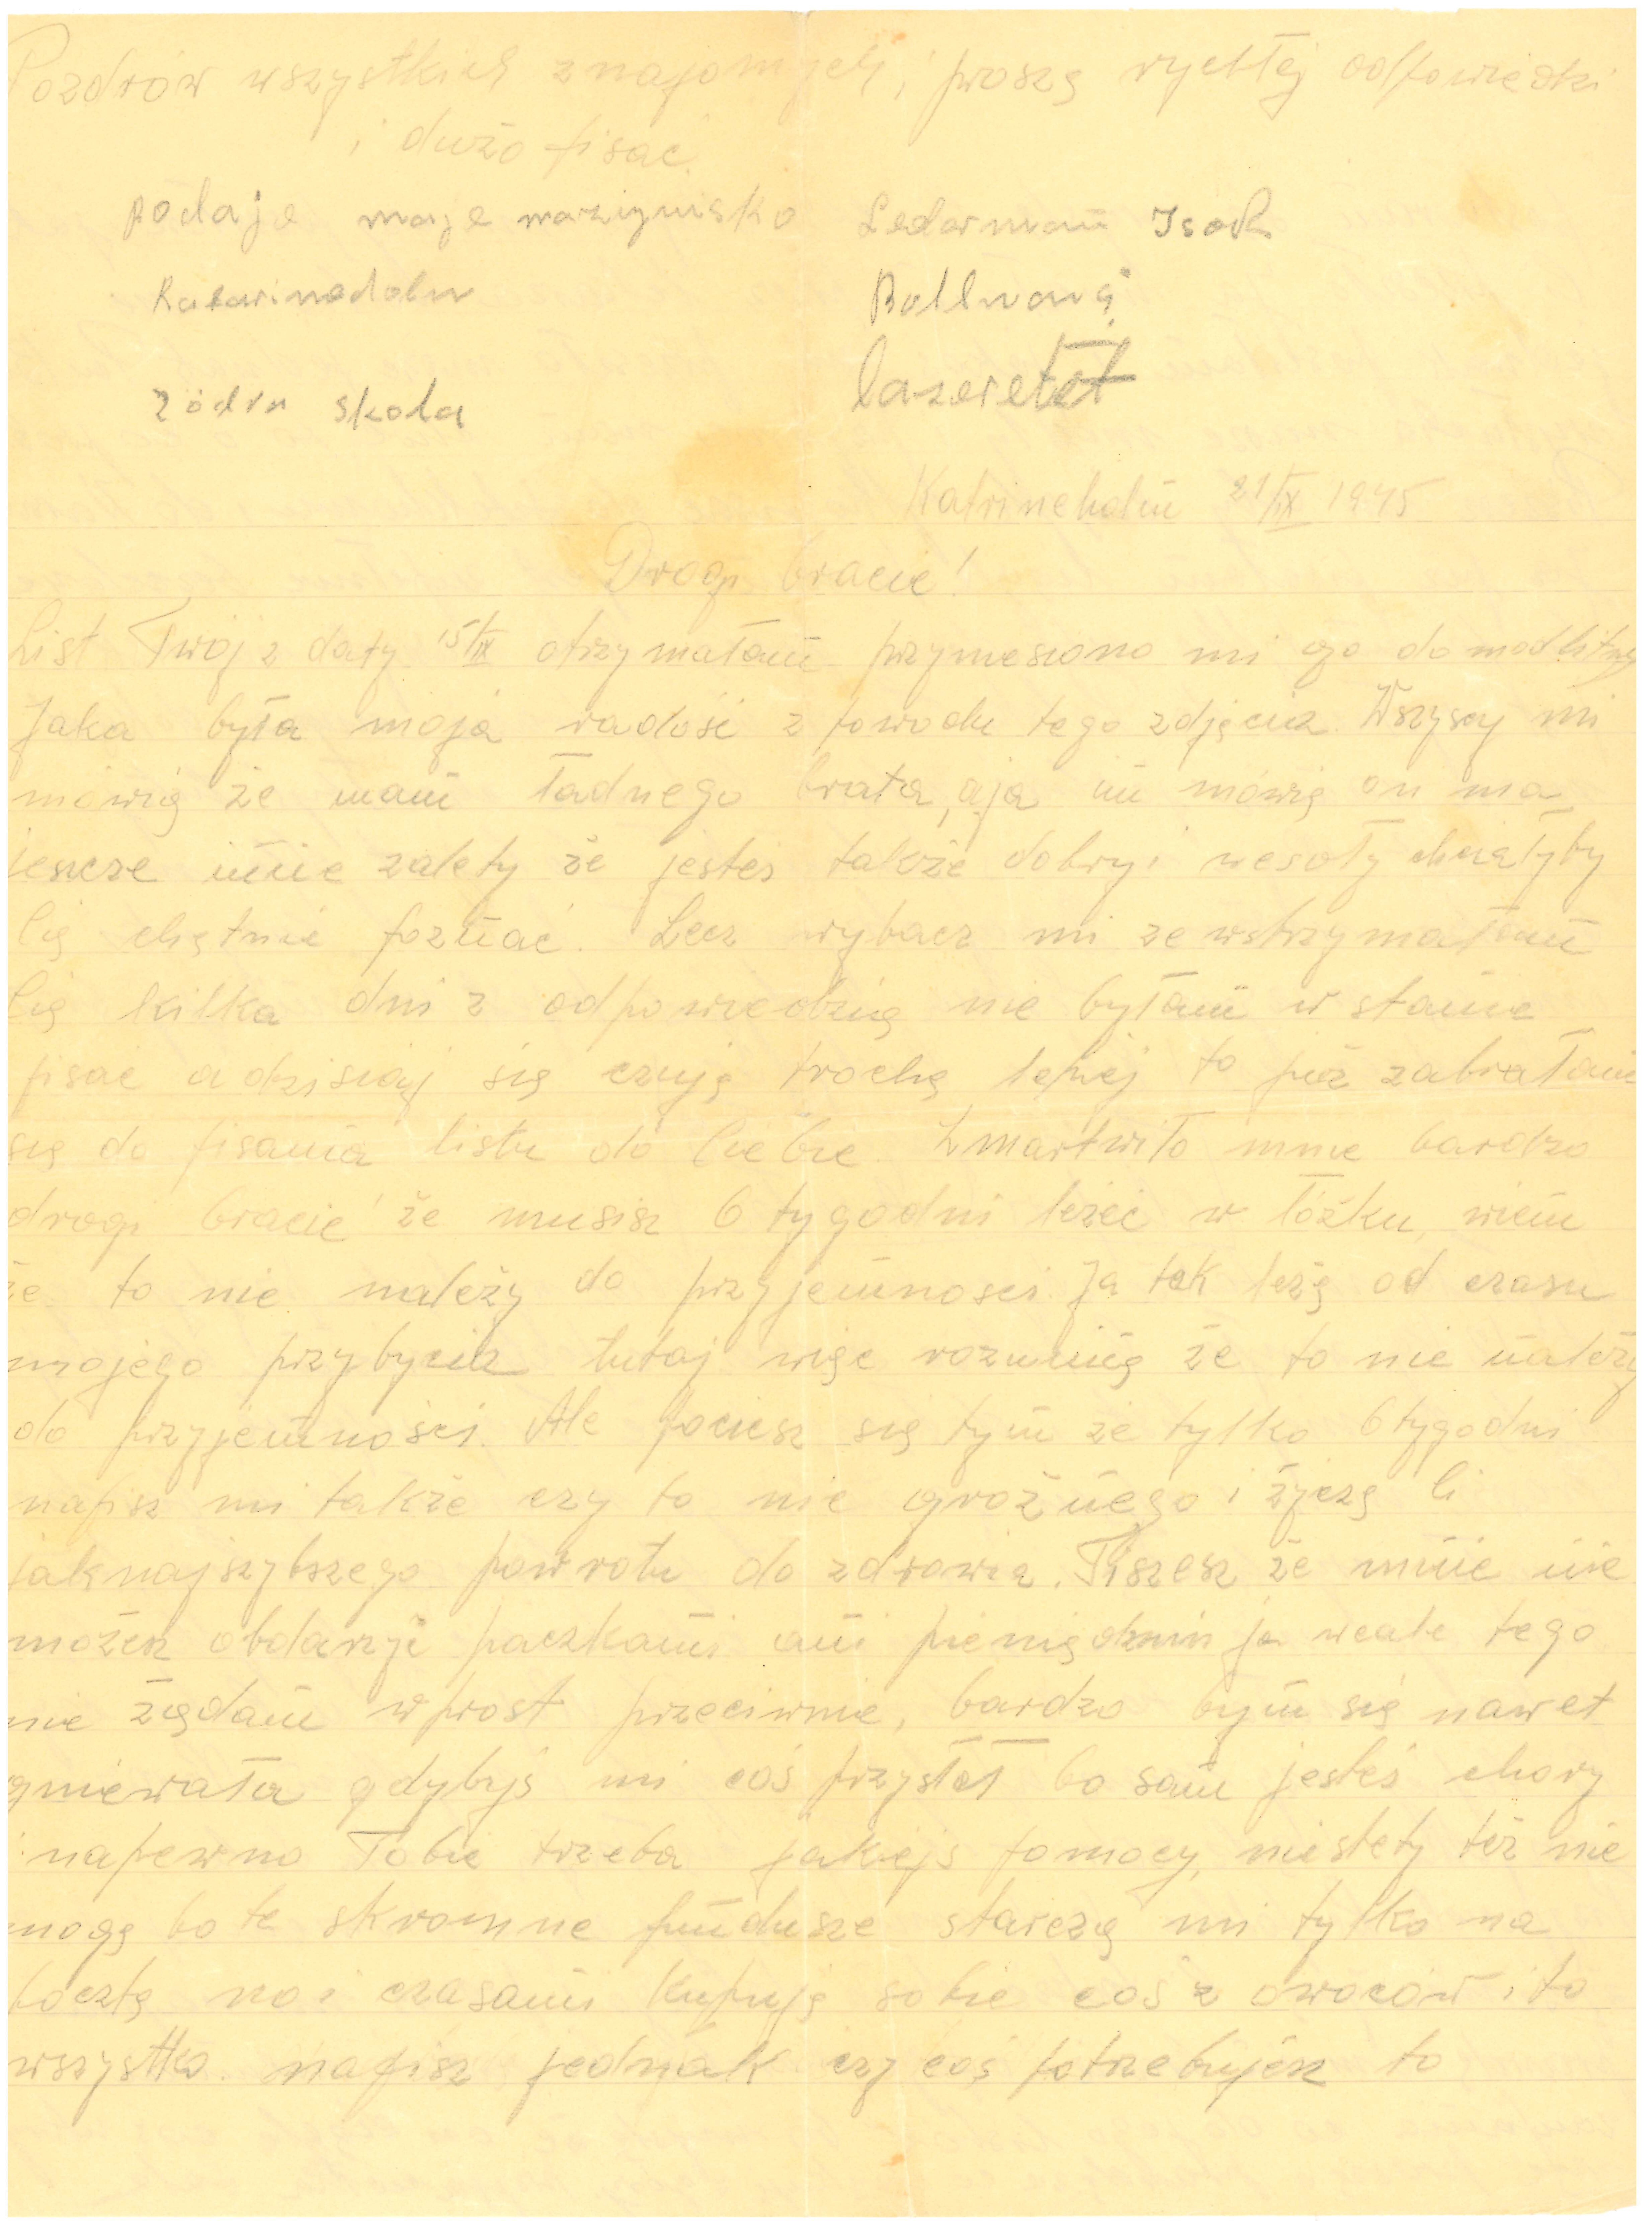 Pozdrów wszystkich znajomych i proszę rychłej odpowiedzi
i dużo pisać
podaje moje nazwisko Lederman Isak
Katarinadolm
lazeretet
Södra skola
Katrineholm 21/IX 1945
Drogi bracie!
List Twój z daty 15/IX otrzymałam przyniesiono mi go do modlitwy
Jaka była moja radość z powodu tego zdjęcia. Wszyscy mi
mówią że mam ładnego brata, a ja im mówię on ma
jeszcze inne zalety że jesteś także dobry i wesoły chciałyby
Cię chętnie poznać. Lecz wybacz mi ze wstrzymałam
Cię kilka dni z odpowiedzią nie byłam w stanie
pisać a dzisiaj się czuję trochę lepiej to już zabrałam
się do pisania listu do Ciebie. Zmartwiło mnie bardzo
drogi bracie że musisz 6 tygodni leżeć w łóżku, wiem
że to nie należy do przyjemności. Ja tak leżę od czasu
mojego przybycia tutaj więc rozumię że to nie należy
do przyjemności. Ale pociesz się tym że tylko 6 tygodni
napisz mi także czy to nic groźnego i życzę Ci
jaknajszybszego powrotu do zdrowia. Piszesz że mnie nie
możesz obdarzyć paczkami ani pieniędzmi ja wcale tego
nie żądam wprost przeciwnie, bardzo bym się nawet
gniewała gdybyś mi coś przysłał bo sam jesteś chory
i napewno Tobie trzeba jakiejś pomocy, niestety też nie
mogę bo te skromne fundusze starczą mi tylko na
pocztę no i czasami kupuję sobie coś z owoców i to
wszystko. napisz jednak czy coś potrzebujesz to